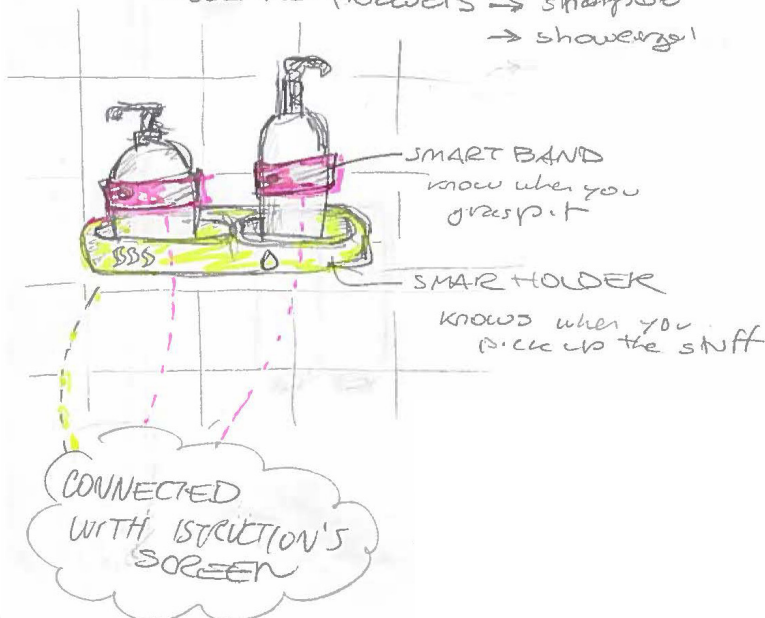 → shampoo
→ showergel
SMART BAND
know when you
grasp it
SMAR HOLDER
KNOWS when you
pick up the stuff
CONNECTED
WITH ISTRUCTION'S
SCREEN